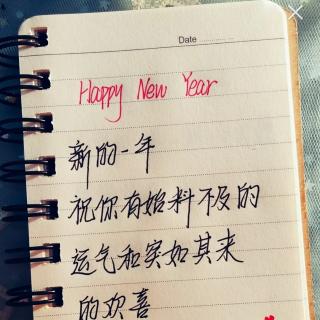 Date
Happy New Year
新的一年
祝你有始料不及的
运气和突如其来
的欢喜